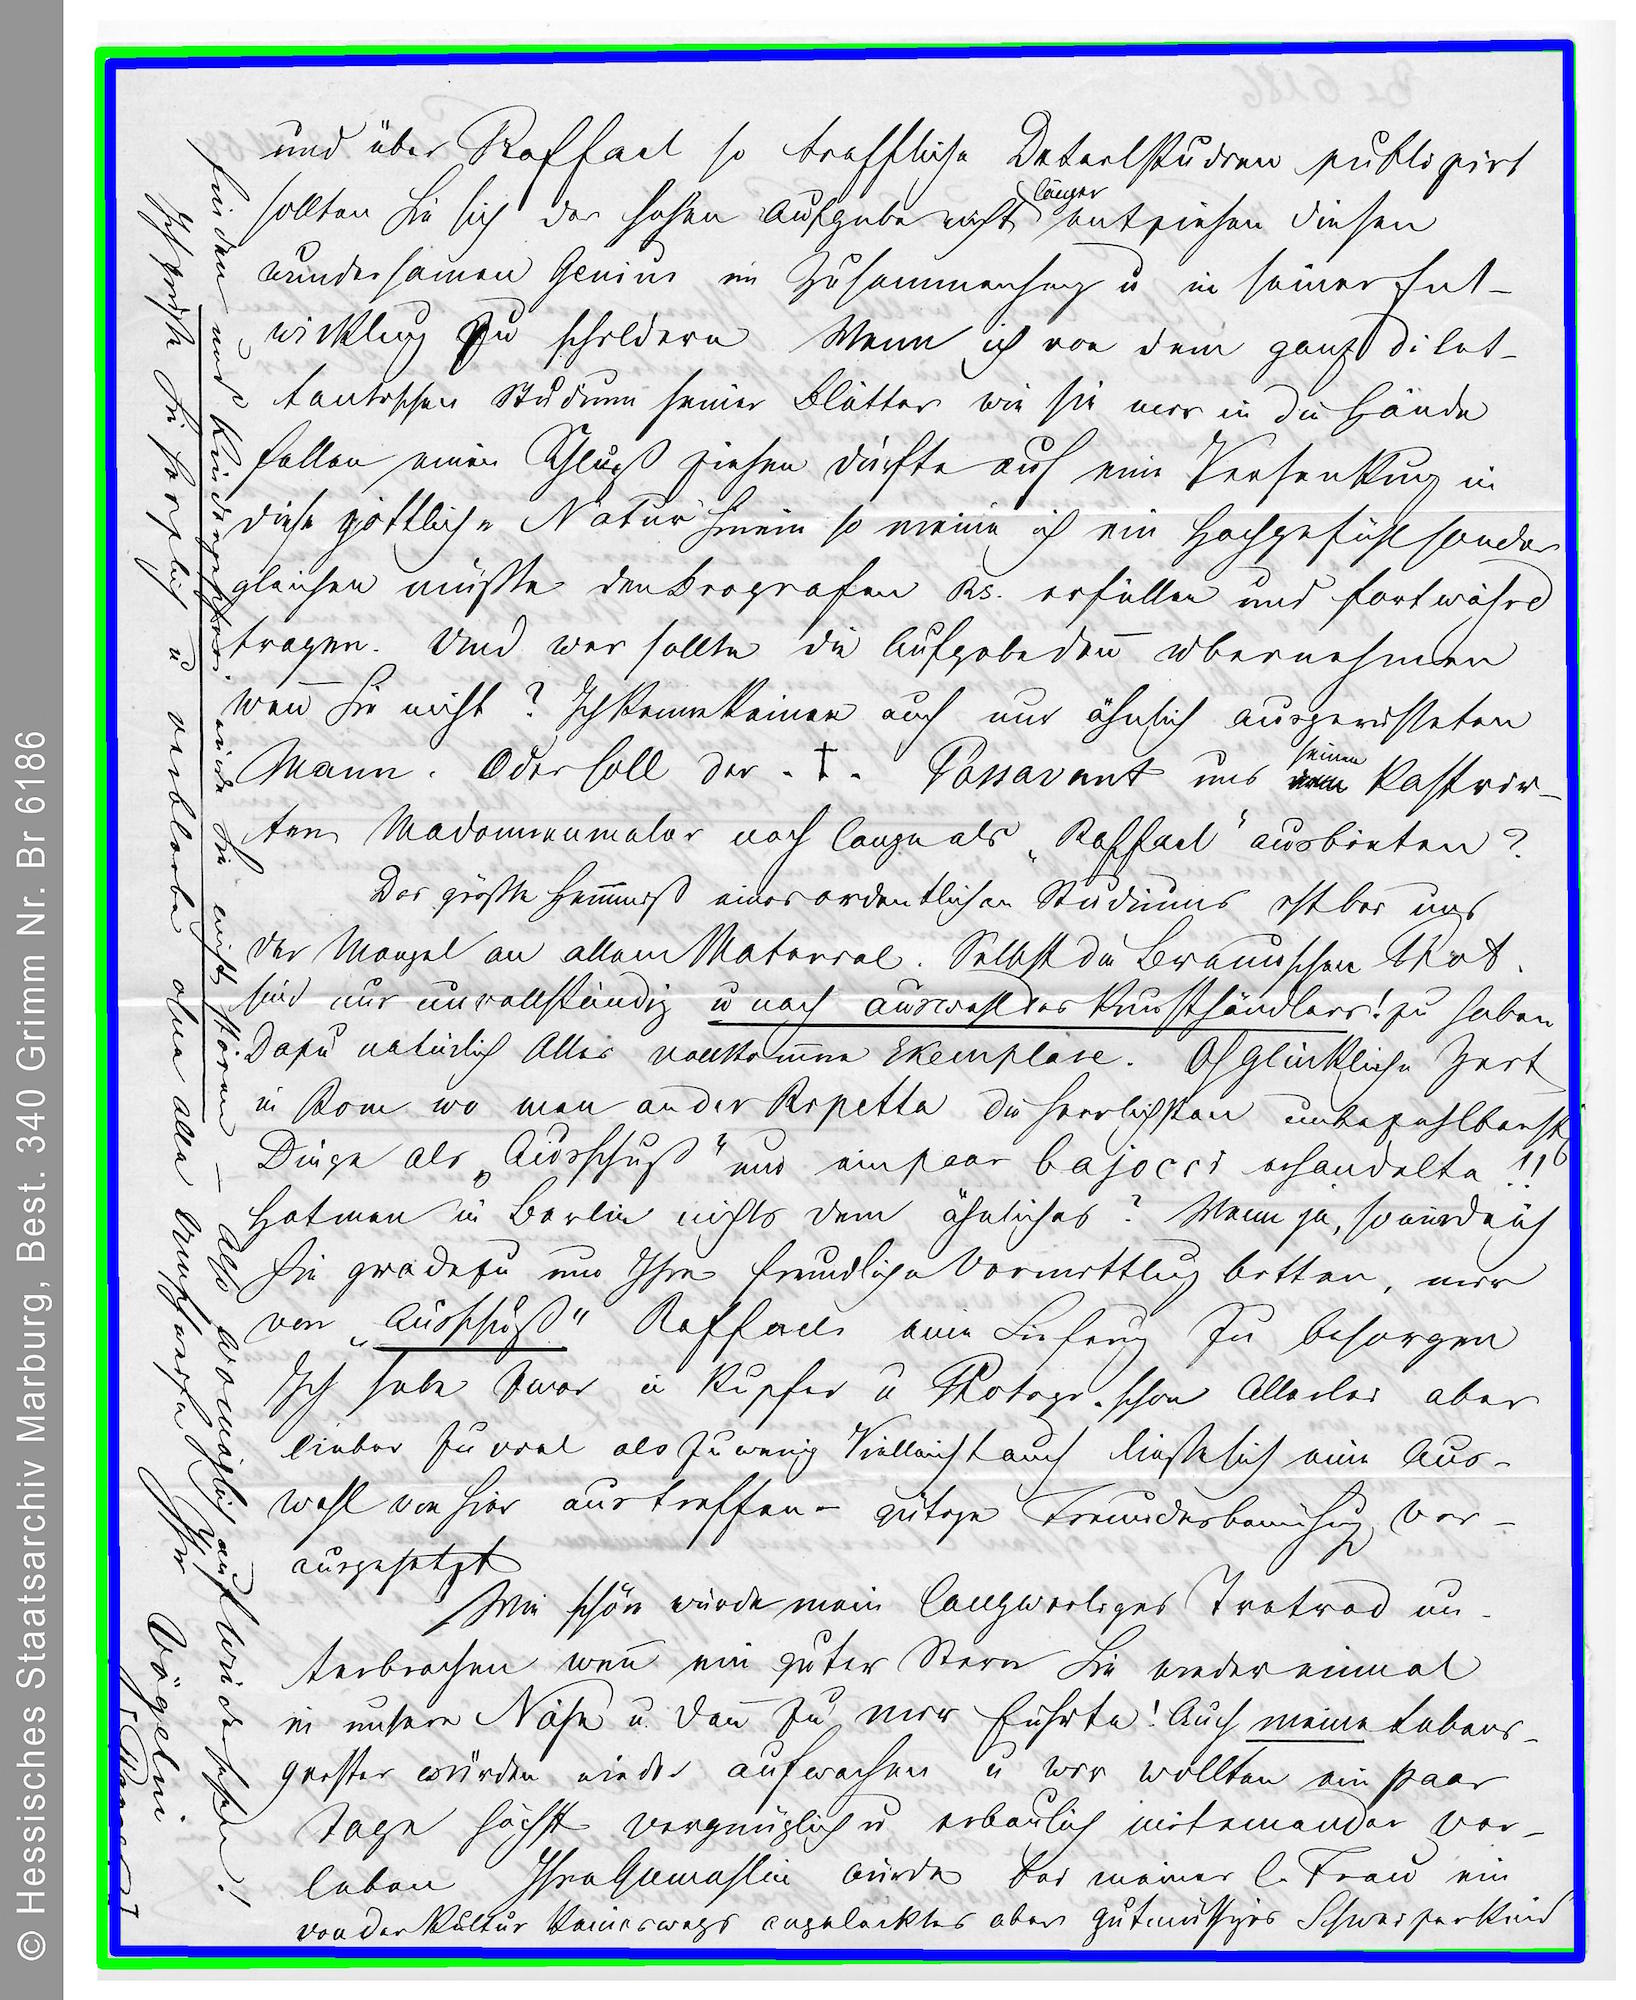 und über Raffael so treffliche Detailstudien publizirt
sollten Sie sich der hohen Aufgabe nicht länger entziehen diesen
wundersamen Genius im Zusammenhang u in seiner Ent-
wicklung zu schildern Wenn ich von dem ganz dilet-
tantischen Studium seiner Blätter wie sie mir in die Hände
fallen einen Schluß ziehen dürfte auf eine Versenkung in
diese göttliche Natur hinein so meine ich ein Hochgefühl sonder
gleichen müßte den Biografen Rs. erfüllen und fortwährd
tragen. Und wer sollte die Aufgabe den̄ übernehmen
wen̄ Sie nicht? Ich kenne keinen auch nur ähnlich ausgerüsteten
Mann. Oder soll der . † . Passavant uns seinen kastrir-
ten Madonnenmaler noch lange als „Raffael“ ausbieten?
Das größte Hem̄niß eines ordentlichen Studiums ist bei uns
der Mangel an allem Material. Selbst die Braunschen Phot.
sind nur unvollständig u nach Auswahl des Kunsthändlers! zu haben
Dazu natürlich Alles vollkom̄ne Exemplare. O glückliche Zeit
in Rom wo man an der Ripetta die herrlichsten unbezahlbarst
Dinge als „Ausschuß“ um ein paar bajocci erhandelte!!
Hat man in Berlin nichts dem ähnliches? Wenn ja, so würde ich
Sie gradezu um Ihre freundliche Vermittlug bitten, mir
von „Ausschuß“ Raffaels eine Lieferug zu besorgen
Ich habe zwar in Kupfer u Photogr. schon Allerlei aber
lieber zu viel als zu wenig Vielleicht auch ließe sich eine Aus-
wahl von hier aus treffen – gütige Freundesbemühug vor-
ausgesetzt
Wie schön würde mein langweiliges Tretrad un-
terbrochen wen̄ ein guter Stern Sie wieder einmal
in unsere Nähe u. dan̄ zu mir führte! Auch meine Lebens-
geister würden wieder aufwachen u wir wollten ein paar
Tage höchst vergnüglich u erbaulich miteinander ver-
leben Ihre Gemahlin würde bei meiner l. Frau ein
von der Kultur keineswegs angelecktes aber gutmüthiges Schweizerkind
finden und Kindergeschrei würde Sie nicht stören – Also womöglich auf Wiedersehen!
Ich grüße Sie herzlich u verbleibe ohne alle Ihr
Vögelin